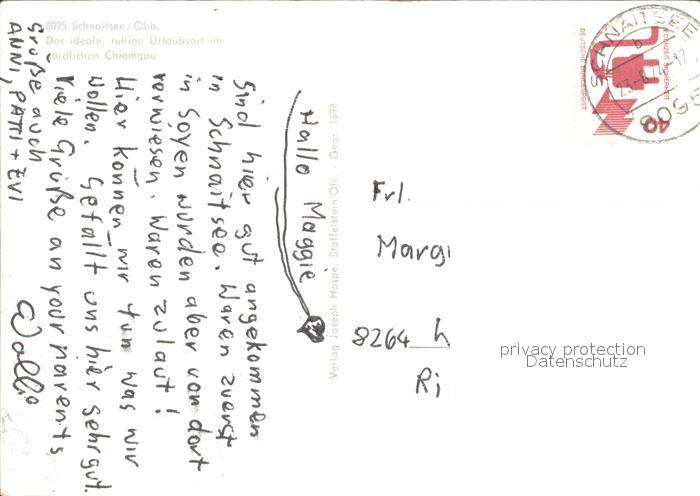 8095 Schnaitsee / Obb.
Der ideale, ruhige Urlaubsort im
nördlichen Chiemgau
Hallo Maggie
Sind hier gut angekommen
in Schnaitsee. Waren zuerst
in Soyen wurden aber von dort
verwiesen. Waren zu laut!
Hier können wir tun was wir
wollen. Gefällt uns hier sehr gut.
Viele Grüße an your parents
Grüße auch
ANNI, PATTI + EVI
Wallie
Verlag Joseph Hospe, Staffelstein/Ofr. · Gegr. 1898
SCHNAITSEE
b
8095
DEUTSCHE BUNDESPOST
JEDERZEIT SICHERHEIT
40
Frl.
Margi
8264 h
Ri
privacy protection
Datenschutz